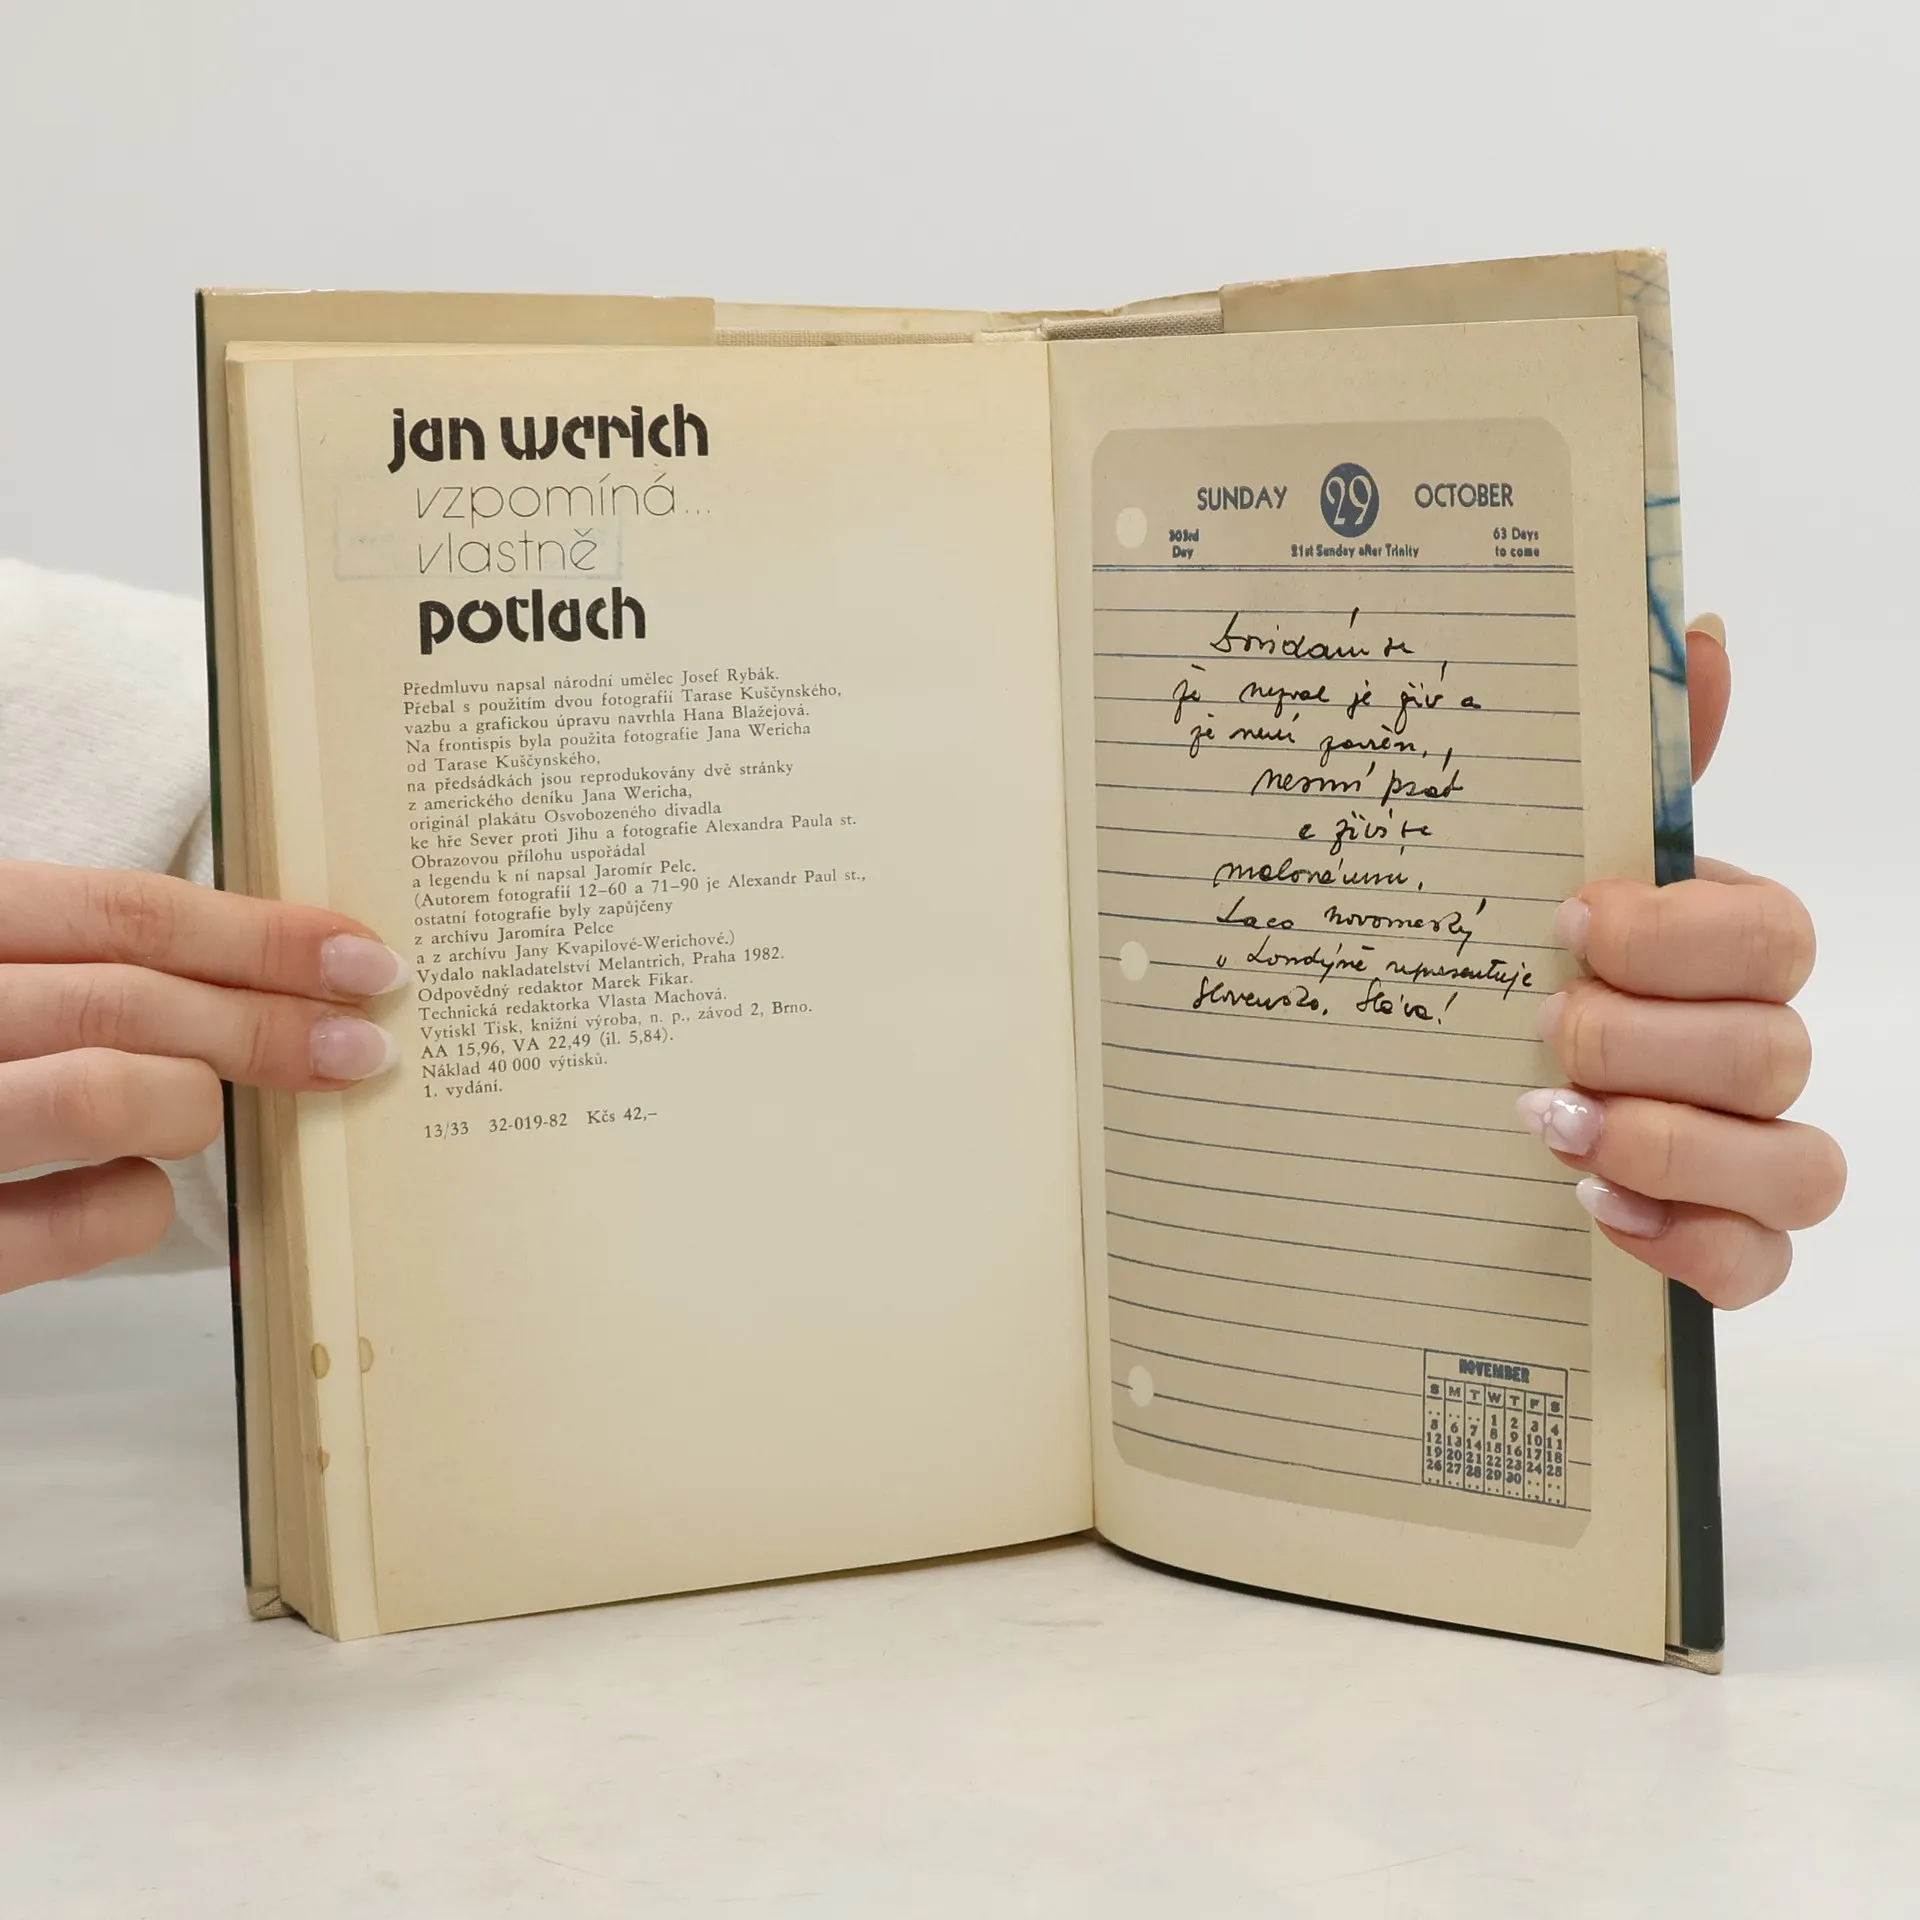 jan werich
vzpomíná...
vlastně
potlach
Předmluvu napsal národní umělec Josef Rybák.
Přebal s použitím dvou fotografií Tarase Kuščynského,
vazbu a grafickou úpravu navrhla Hana Blažejová.
Na frontispis byla použita fotografie Jana Wericha
od Tarase Kuščynského,
na předsádkách jsou reprodukovány dvě stránky
z amerického deníku Jana Wericha,
originál plakátu Osvobozeného divadla
ke hře Sever proti Jihu a fotografie Alexandra Paula st.
Obrazovou přílohu uspořádal
a legendu k ní napsal Jaromír Pelc.
(Autorem fotografií 12–60 a 71–90 je Alexandr Paul st.,
ostatní fotografie byly zapůjčeny
z archívu Jaromíra Pelce
a z archívu Jany Kvapilové-Werichové.)
Vydalo nakladatelství Melantrich, Praha 1982.
Odpovědný redaktor Marek Fikar.
Technická redaktorka Vlasta Machová.
Vytiskl Tisk, knižní výroba, n. p., závod 2, Brno.
AA 15,96, VA 22,49 (il. 5,84).
Náklad 40 000 výtisků.
1. vydání.
13/33 32-019-82 Kčs 42,–
SUNDAY 29 OCTOBER
303rd Day 21st Sunday after Trinity 63 Days to come
se
že nezval je živ a
že není zavřen,
nesmí psát
a živí se
Laco Novomeský
v Londýně representuje
Slovensko. Sláva!
NOVEMBER
S M T W T F S
.. .. .. 1 2 3 4
5 6 7 8 9 10 11
12 13 14 15 16 17 18
19 20 21 22 23 24 25
26 27 28 29 30 .. ..